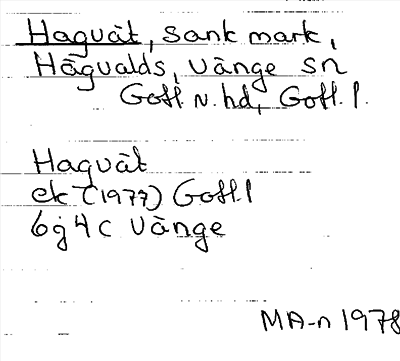 Haguät, sank mark,
Hägvalds, Vänge sn
Gotl. n. hd, Gotl. l.
Haguät
ek (1977) Gotl. l
6j4c Vänge
MA-n 1978